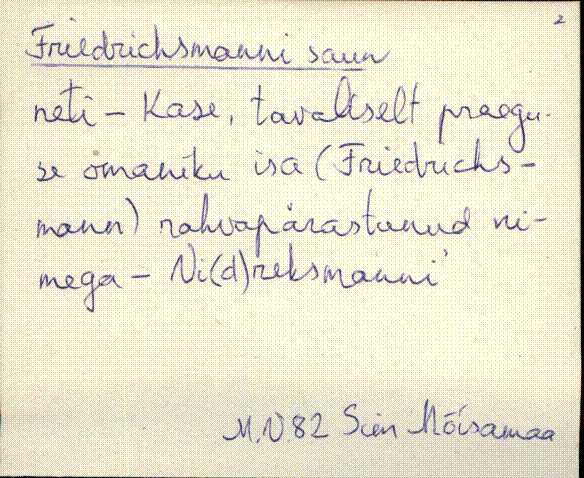 2
Friedrichsmanni saun
neti - Kase, tavaliselt praegu-
se omaniku isa (Friedrichs-
mann) rahvapärastanud ni-
mega - Ni(d)reksmanni'
M.V.82 Siim Mõisamaa